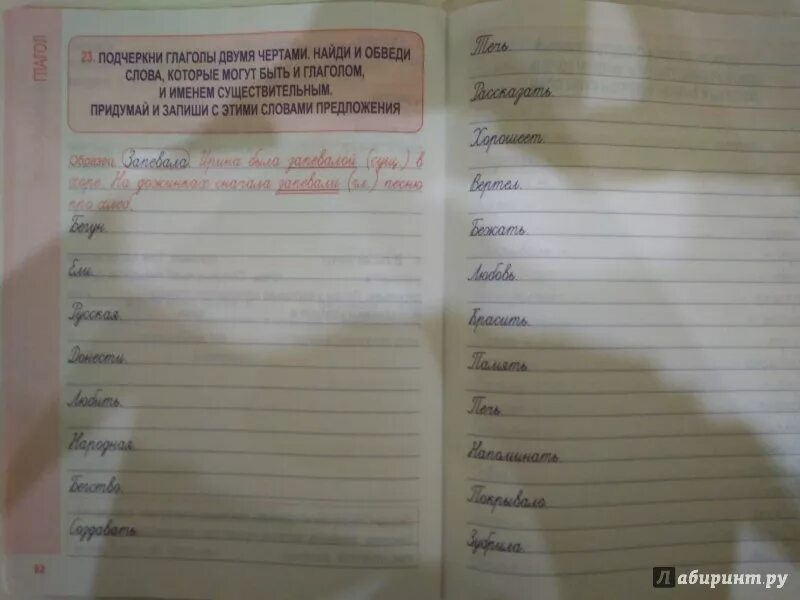 ГЛАГОЛ
23. ПОДЧЕРКНИ ГЛАГОЛЫ ДВУМЯ ЧЕРТАМИ. НАЙДИ И ОБВЕДИ
СЛОВА, КОТОРЫЕ МОГУТ БЫТЬ И ГЛАГОЛОМ,
И ИМЕНЕМ СУЩЕСТВИТЕЛЬНЫМ.
ПРИДУМАЙ И ЗАПИШИ С ЭТИМИ СЛОВАМИ ПРЕДЛОЖЕНИЯ
Образец. Запевала. Ирина была запевалой (сущ.) в
хоре. На дожинках сначала запевали (гл.) песню
про хлеб.
Бегун.
Ели.
Русская.
Донести.
Любить.
Народная.
Бегство.
Создавать.
92
Течь.
Рассказать.
Хорошеет.
Вертел.
Бежать.
Любовь.
Красить.
Память.
Печь.
Напоминать.
Покрывало.
Зубрила.
Лабиринт.ру